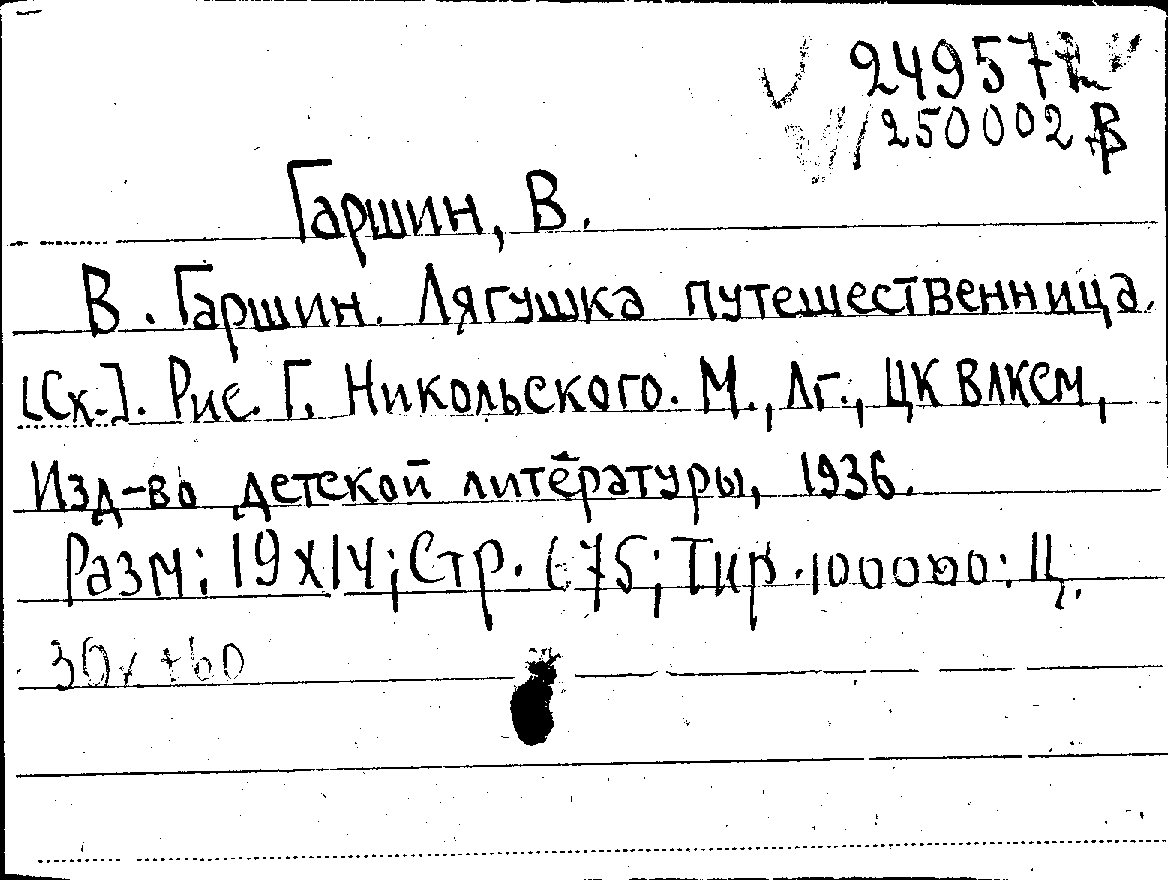 249572
250002 В
Гаршин, В.
В. Гаршин. Лягушка путешественница.
[Ск.]. Рис. Г. Никольского. М., Лг., ЦК ВЛКСМ,
Изд-во детской литературы, 1936.
Разм: 19х14; Стр. ; Тир. 100000: Ц.